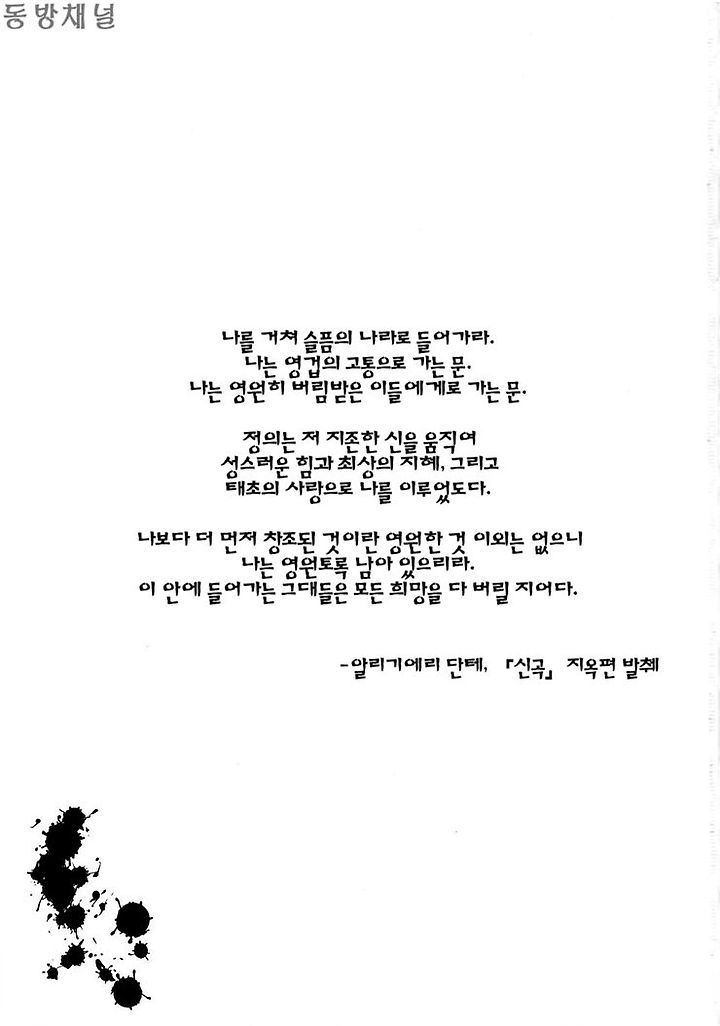 동방채널
나를 거쳐 슬픔의 나라로 들어가라.
나는 영겁의 고통으로 가는 문.
나는 영원히 버림받은 이들에게로 가는 문.
정의는 저 지존한 신을 움직여
성스러운 힘과 최상의 지혜, 그리고
태초의 사랑으로 나를 이루었도다.
나보다 더 먼저 창조된 것이란 영원한 것 이외는 없으니
나는 영원토록 남아 있으리라.
이 안에 들어가는 그대들은 모든 희망을 다 버릴 지어다.
-알리기에리 단테, 『신곡』 지옥편 발췌